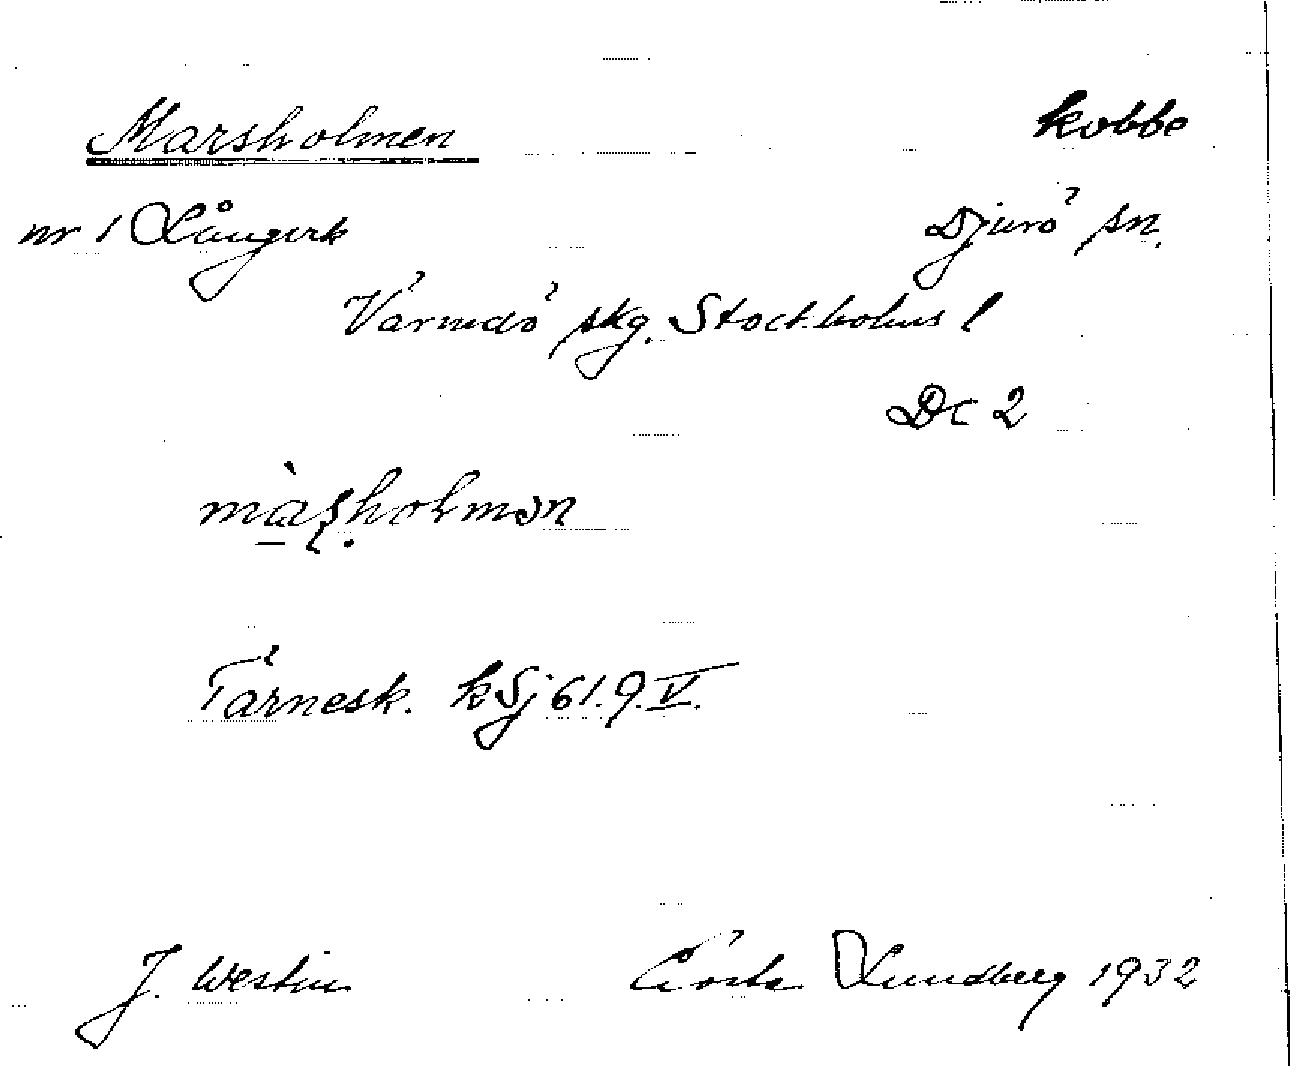 Marsholmen kobbe
nr 1 Långvik Djurö sn.
Värmdö skg. Stockholms l
Dc 2
màʂholmən
Tärnesk. kSj 61.9.V.
J. Westin Gösta Lundberg 1932